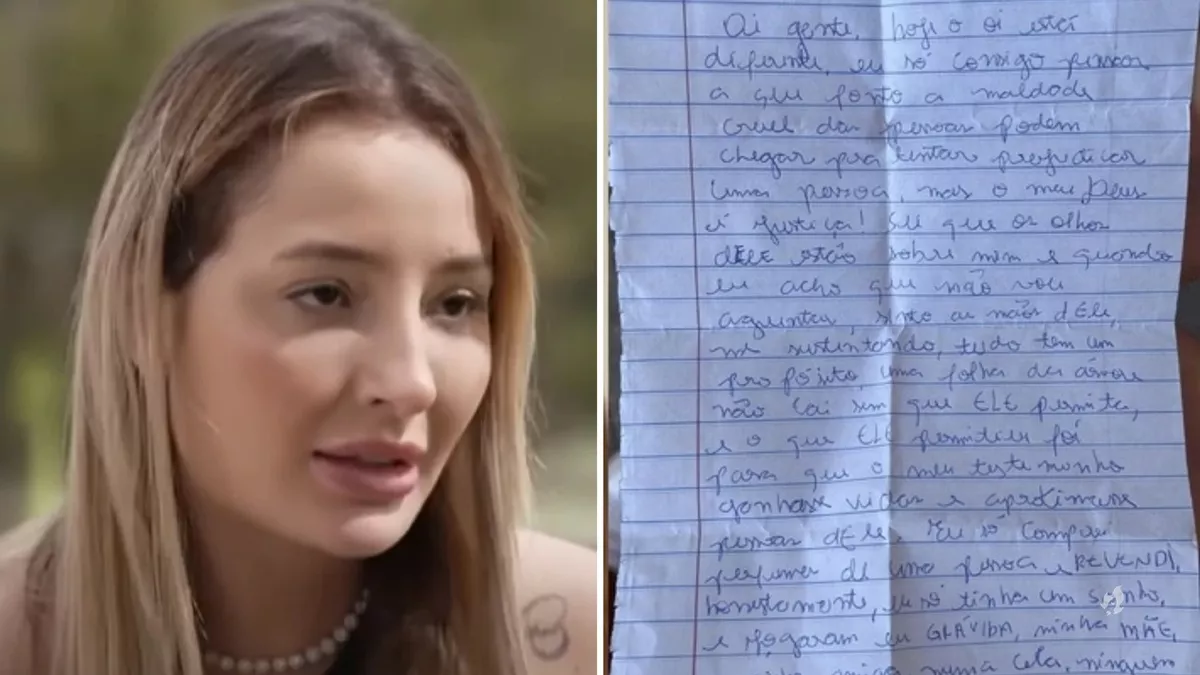 Oi gente, hoje o oi está
diferente, eu só consigo pensar
a que ponto a maldade
cruel das pessoas podem
chegar pra tentar prejudicar
uma pessoa, mas o meu Deus
é justiça! Sei que os olhos
dELE estão sobre mim e quando
eu acho que não vou
aguentar, sinto as mãos dEle,
me sustentando, tudo tem um
propósito, uma folha da árvore
não cai sem que ELE permita,
e o que ELE permitiu foi
para que o meu testemunho
ganhasse vidas e aproximasse
pessoas dEle. Eu só comprei
perfumes de uma pessoa e REVENDI,
honestamente, eu só tinha um sonho,
e jogaram eu GRÁVIDA, minha MÃE,
amiga numa cela, ninguém